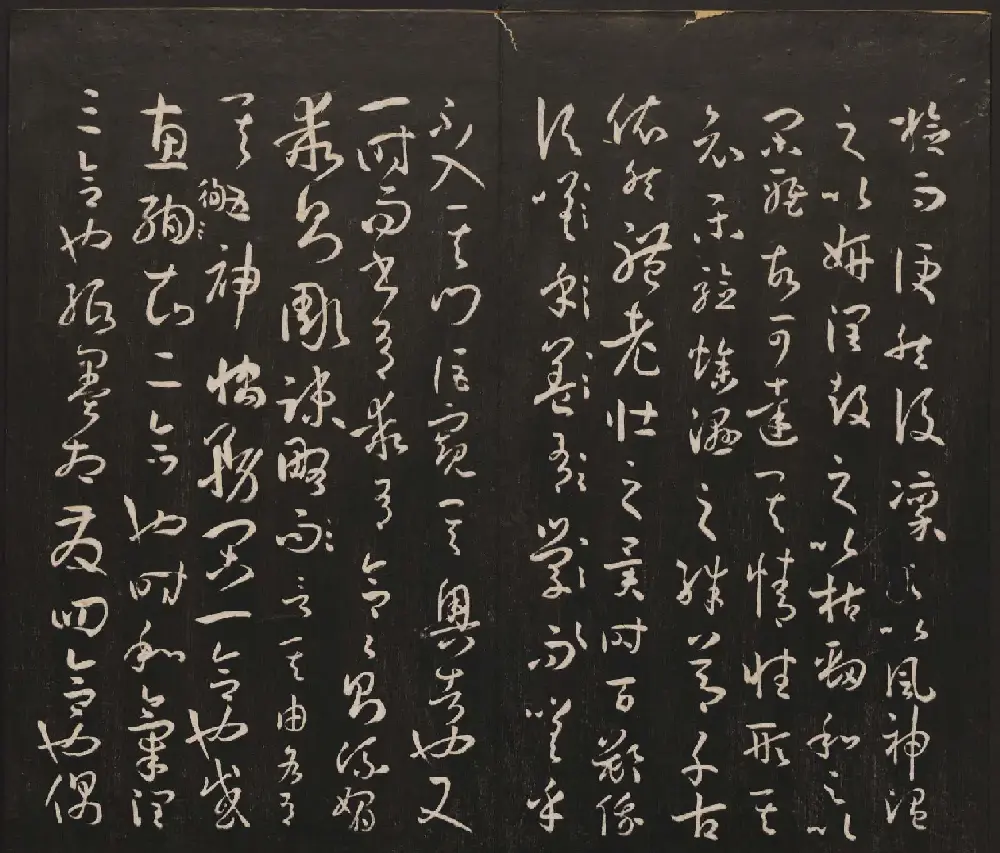 檢而便然後凜之以風神溫
之以妍潤鼓之以枯勁和之以
閑雅故可達其情性形其
哀樂驗燥濕之殊節千古
依然體老壯之異時百齡俄
頃嗟乎
不入其門詎窺其奧者也又
一時而書有乖有合合則流媚
乖則彫疎略言其由各有
其五神怡務閑一合也感
惠徇知二合也時和氣潤
三合也紙墨相發四合也偶